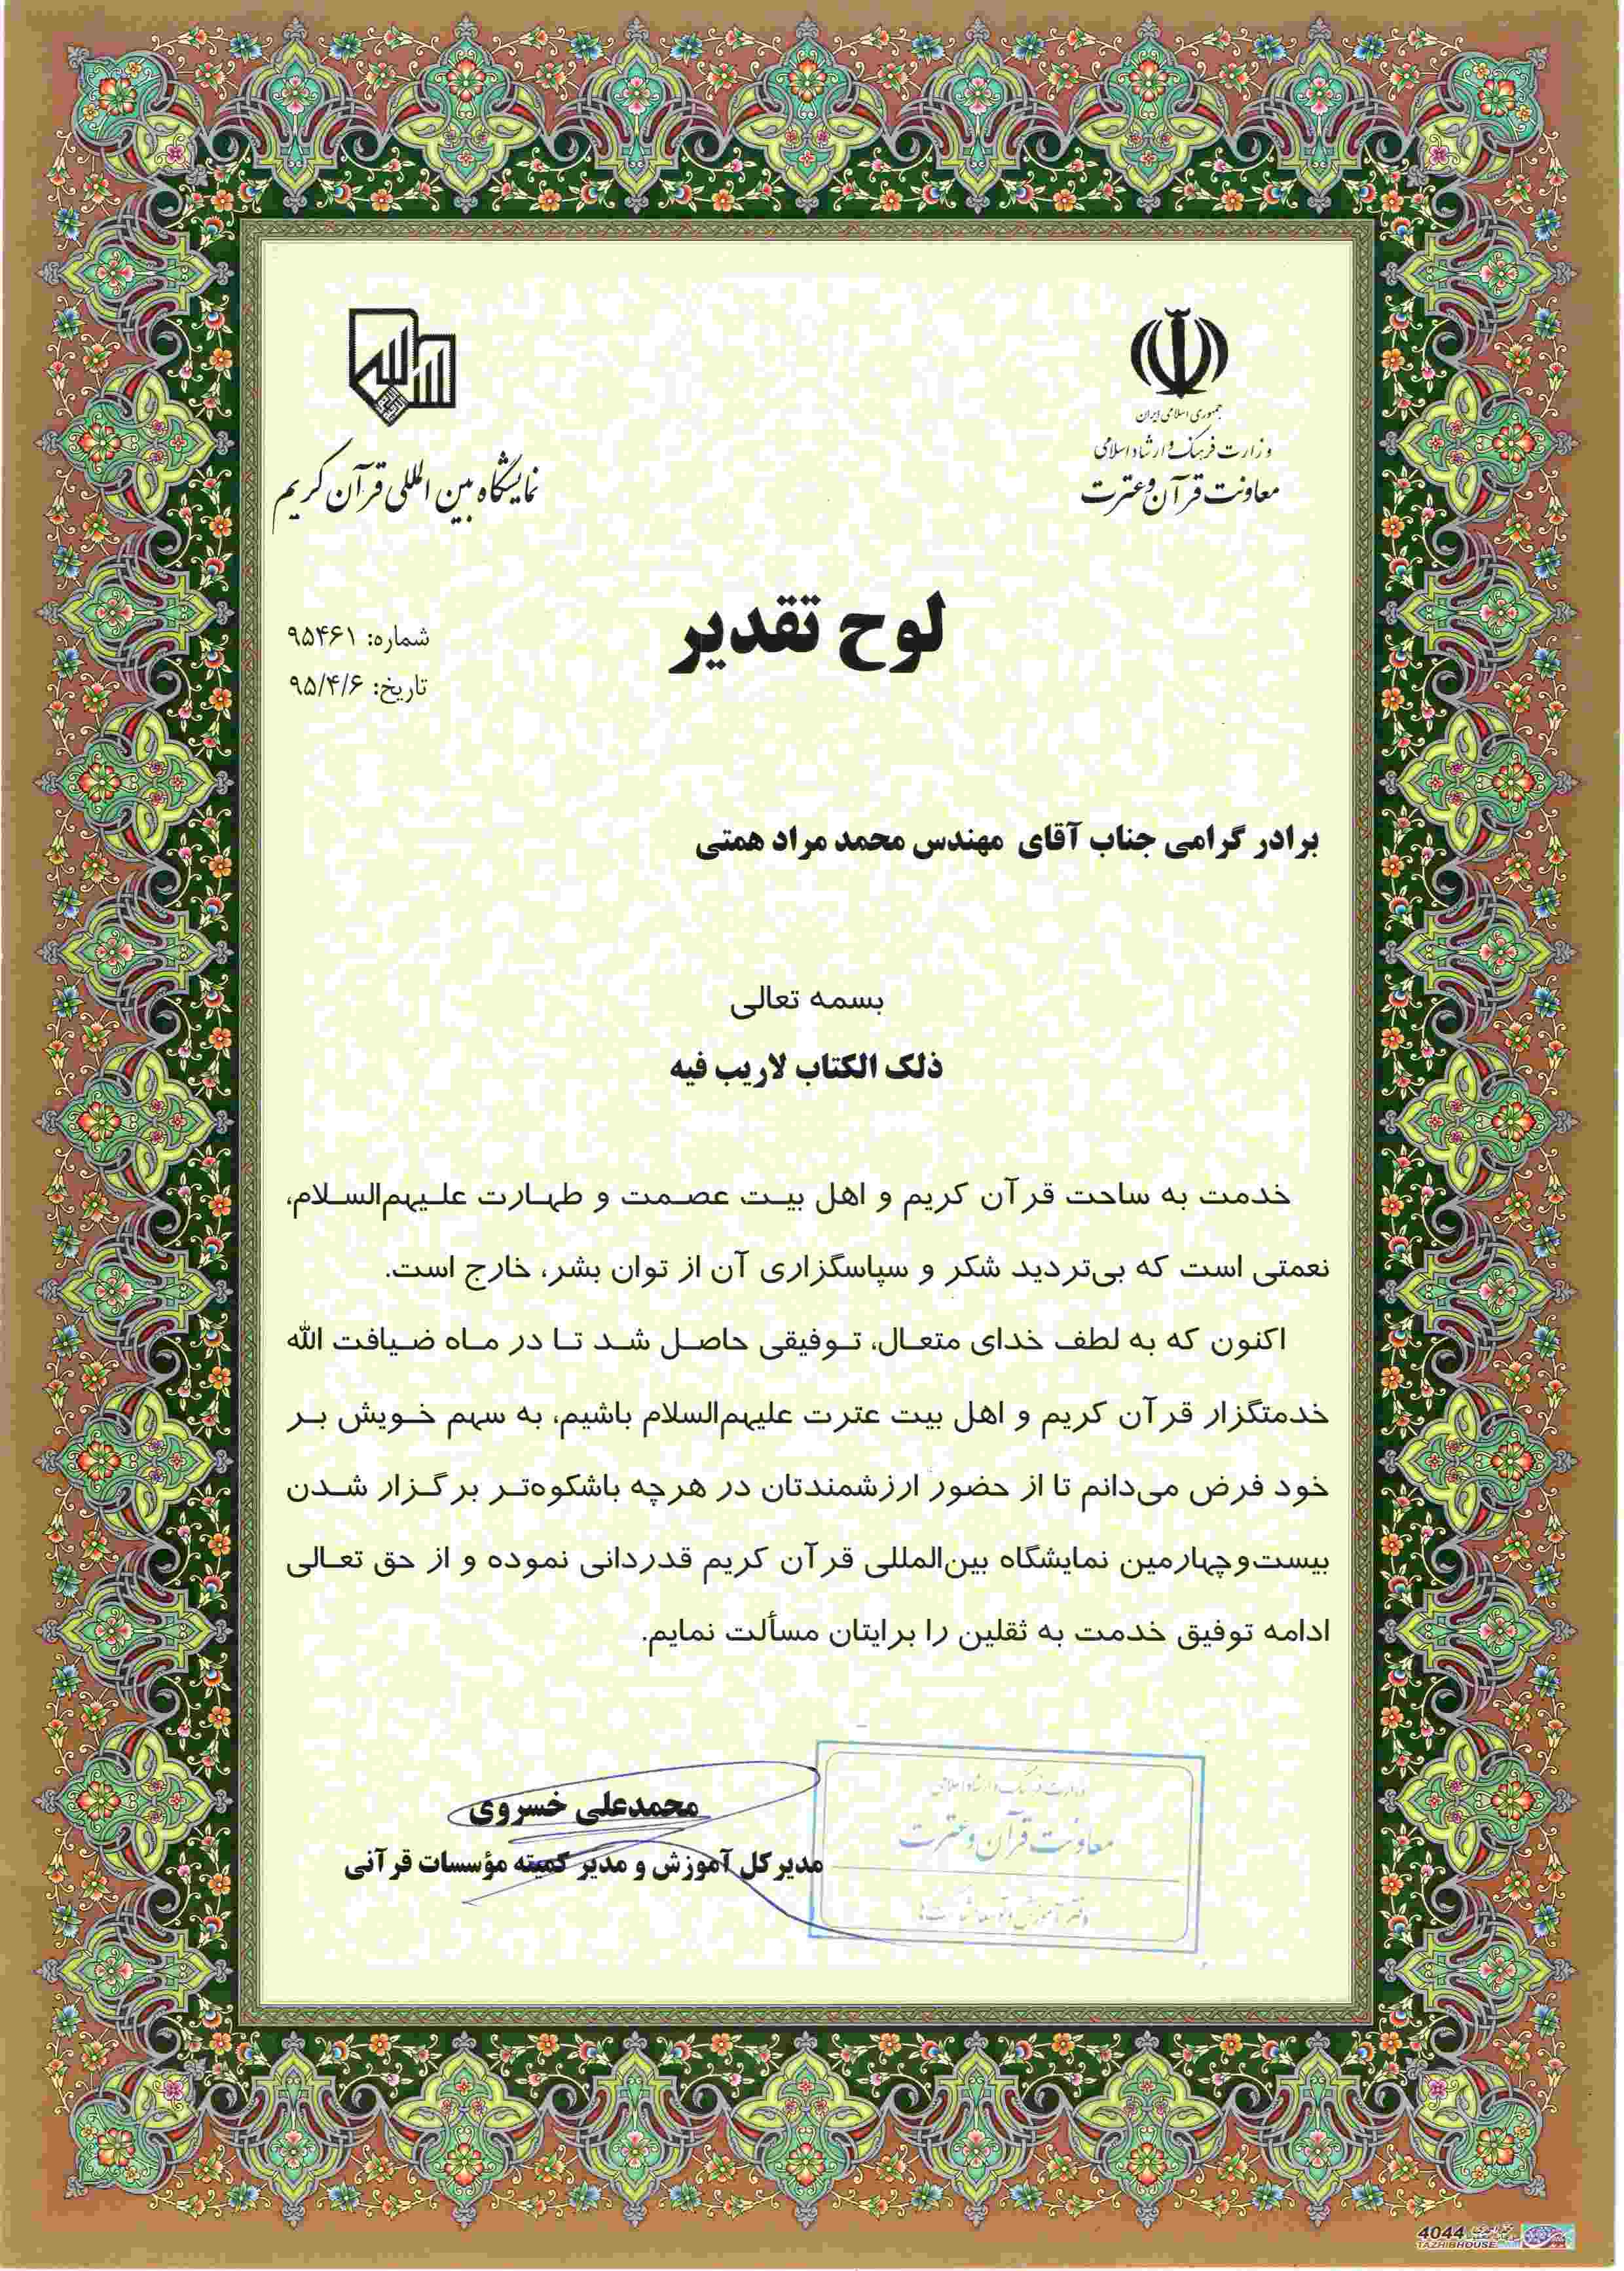 جمهوری اسلامی ایران
وزارت فرهنگ و ارشاد اسلامی
معاونت قرآن و عترت
نمایشگاه بین المللی قرآن کریم
لوح تقدیر
شماره: ۹۵۴۶۱
تاریخ: ۹۵/۴/۶
برادر گرامی جناب آقای مهندس محمد مراد همتی
بسمه تعالی
ذلک الکتاب لاریب فیه
خدمت به ساحت قرآن کریم و اهل بیت عصمت و طهارت علیهم‌السلام،
نعمتی است که بی‌تردید شکر و سپاسگزاری آن از توان بشر، خارج است.
اکنون که به لطف خدای متعال، توفیقی حاصل شد تا در ماه ضیافت الله
خدمتگزار قرآن کریم و اهل بیت عترت علیهم‌السلام باشیم، به سهم خویش بر
خود فرض می‌دانم تا از حضور ارزشمندتان در هرچه باشکوه‌تر برگزار شدن
بیست‌وچهارمین نمایشگاه بین‌المللی قرآن کریم قدردانی نموده و از حق تعالی
ادامه توفیق خدمت به ثقلین را برایتان مسألت نمایم.
محمدعلی خسروی
مدیرکل آموزش و مدیر کمیته مؤسسات قرآنی
وزارت فرهنگ و ارشاد اسلامی
معاونت قرآن و عترت
دفتر آموزش و توسعه
4044
TAZHIBHOUSE